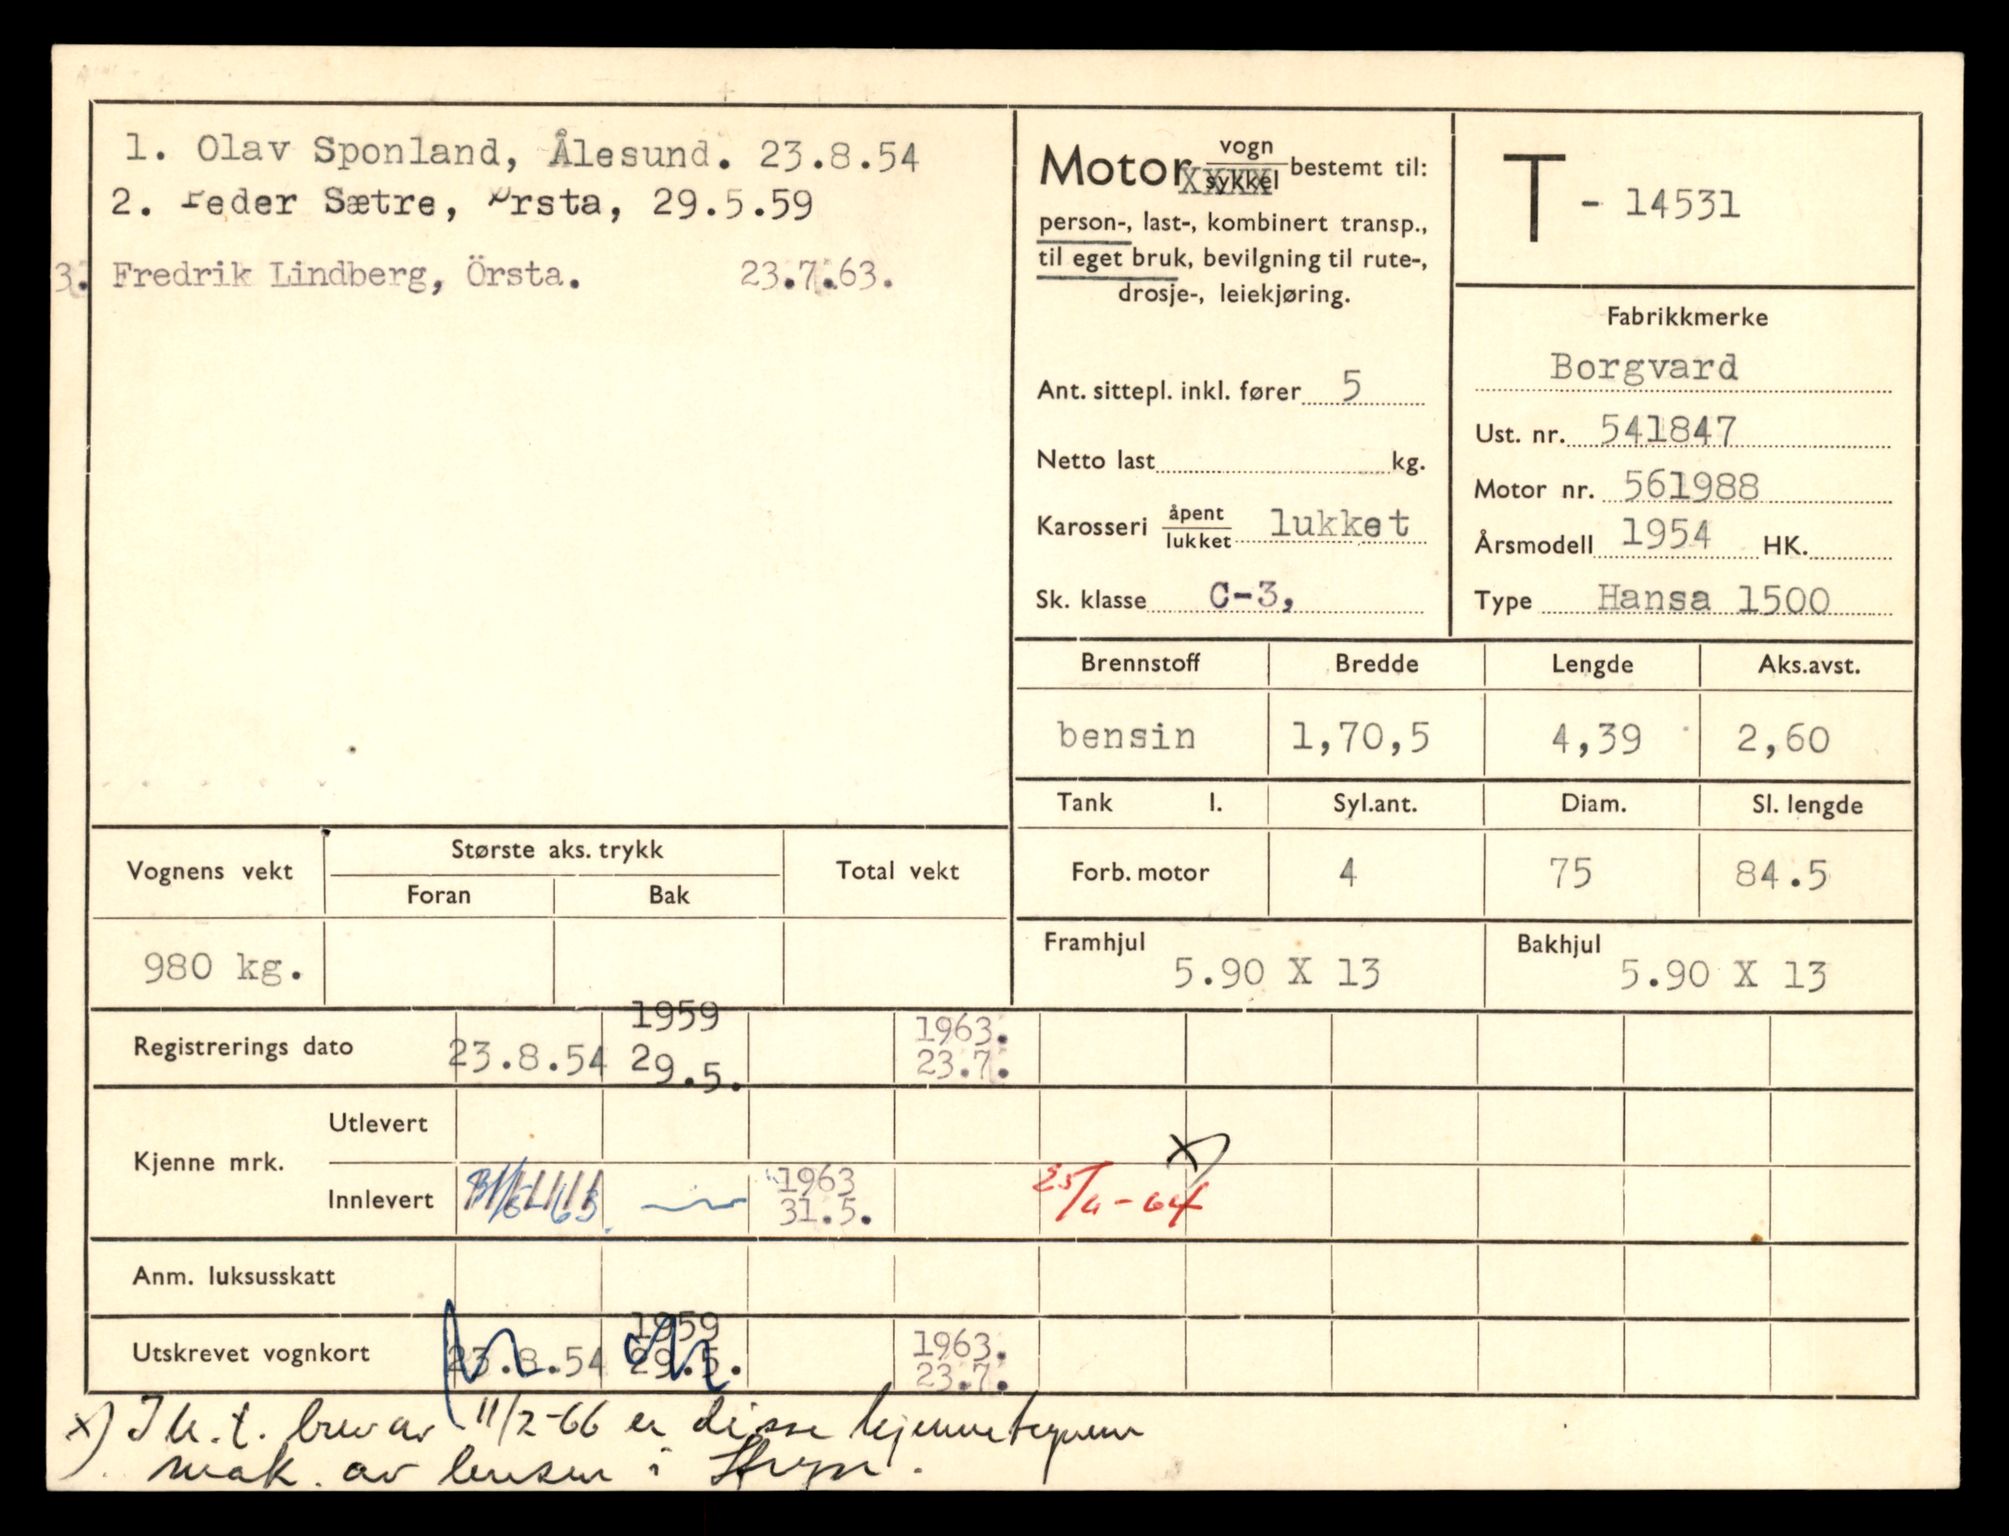 1. Olav Sponland, Ålesund. 23.8.54
2. Peder Sætre, Ørsta, 29.5.59
3. Fredrik Lindberg, Örsta. 23.7.63.
Motor vogn sykkel bestemt til:
person-, last-, kombinert transp.,
til eget bruk, bevilgning til rute-,
drosje-, leiekjøring.
Ant. sittepl. inkl. fører 5
Netto last kg.
Karosseri åpent lukket lukket
Sk. klasse C-3,
T - 14531
Fabrikkmerke
Borgvard
Ust. nr. 541847
Motor nr. 561988
Årsmodell 1954 HK.
Type Hansa 1500
Brennstoff Bredde Lengde Aks.avst.
bensin 1,70,5 4,39 2,60
Tank l. Syl.ant. Diam. Sl. lengde
Forb. motor 4 75 84.5
Framhjul 5.90 X 13 Bakhjul 5.90 X 13
Vognens vekt Største aks. trykk Total vekt
Foran Bak
980 kg.
Registrerings dato 23.8.54 1959 29.5. 1963. 23.7.
Kjenne mrk.
Utlevert
Innlevert 31/5-63. 1963 31.5. x)
Anm. luksusskatt
Utskrevet vognkort 23.8.54 1959 29.5. 1963. 23.7.
x) brev av 11/2-66 er disse kjennetegnene
mak. av i Stryn.